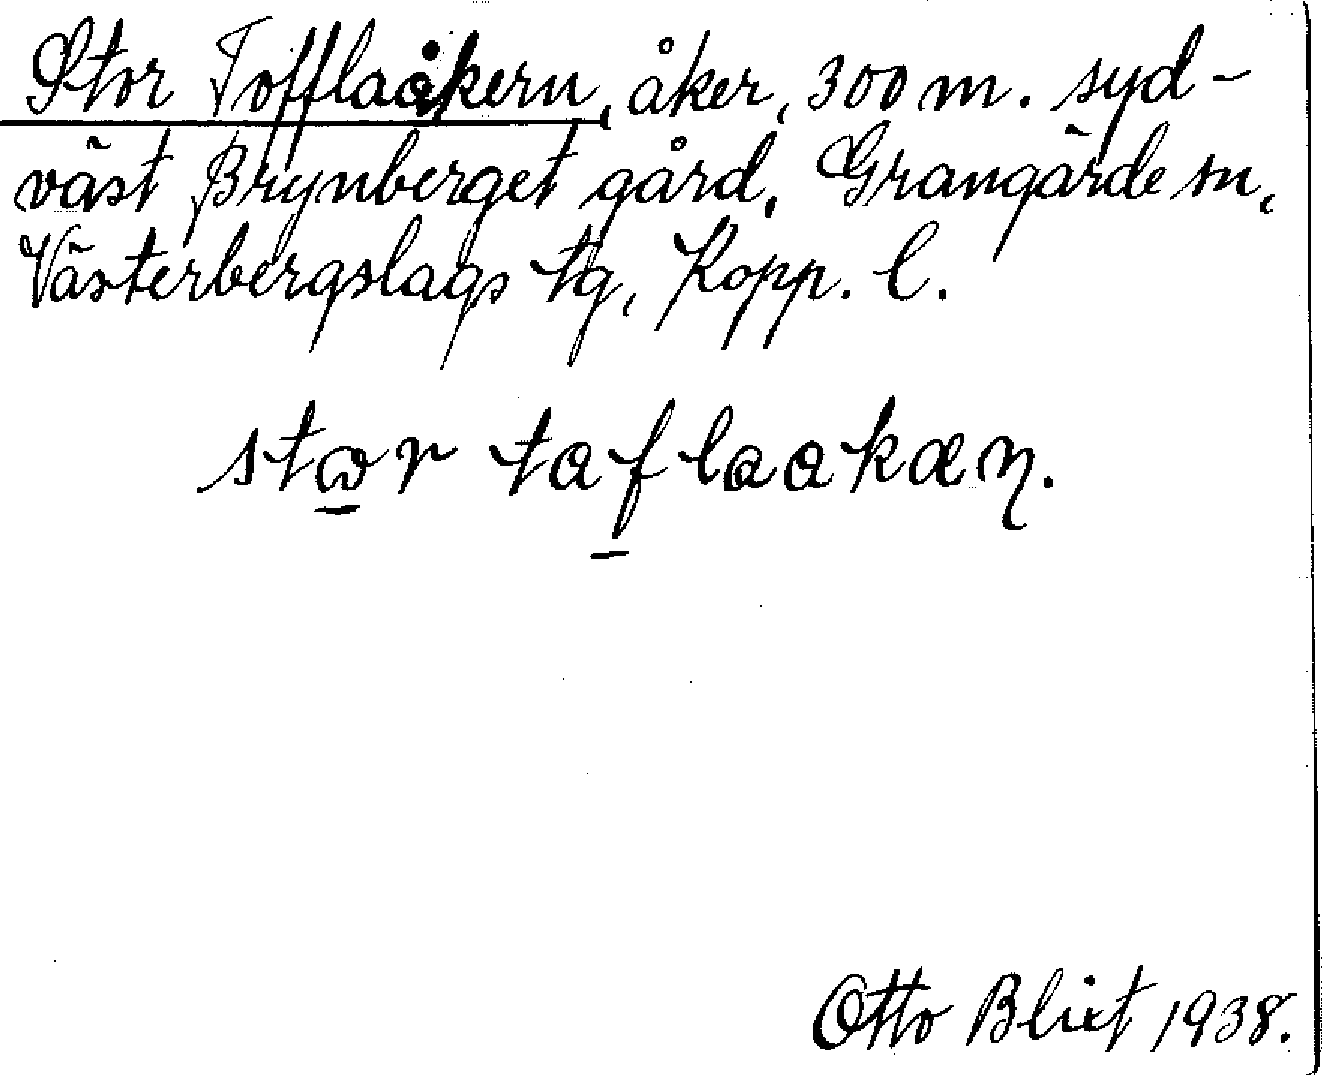 Stor Tofflaåkern, åker, 300 m. syd-
väst Brynberget gård, Grangärde sn,
Västerbergslags tg, Kopp. l.
stor taflaakæn.
Otto Blixt 1938.